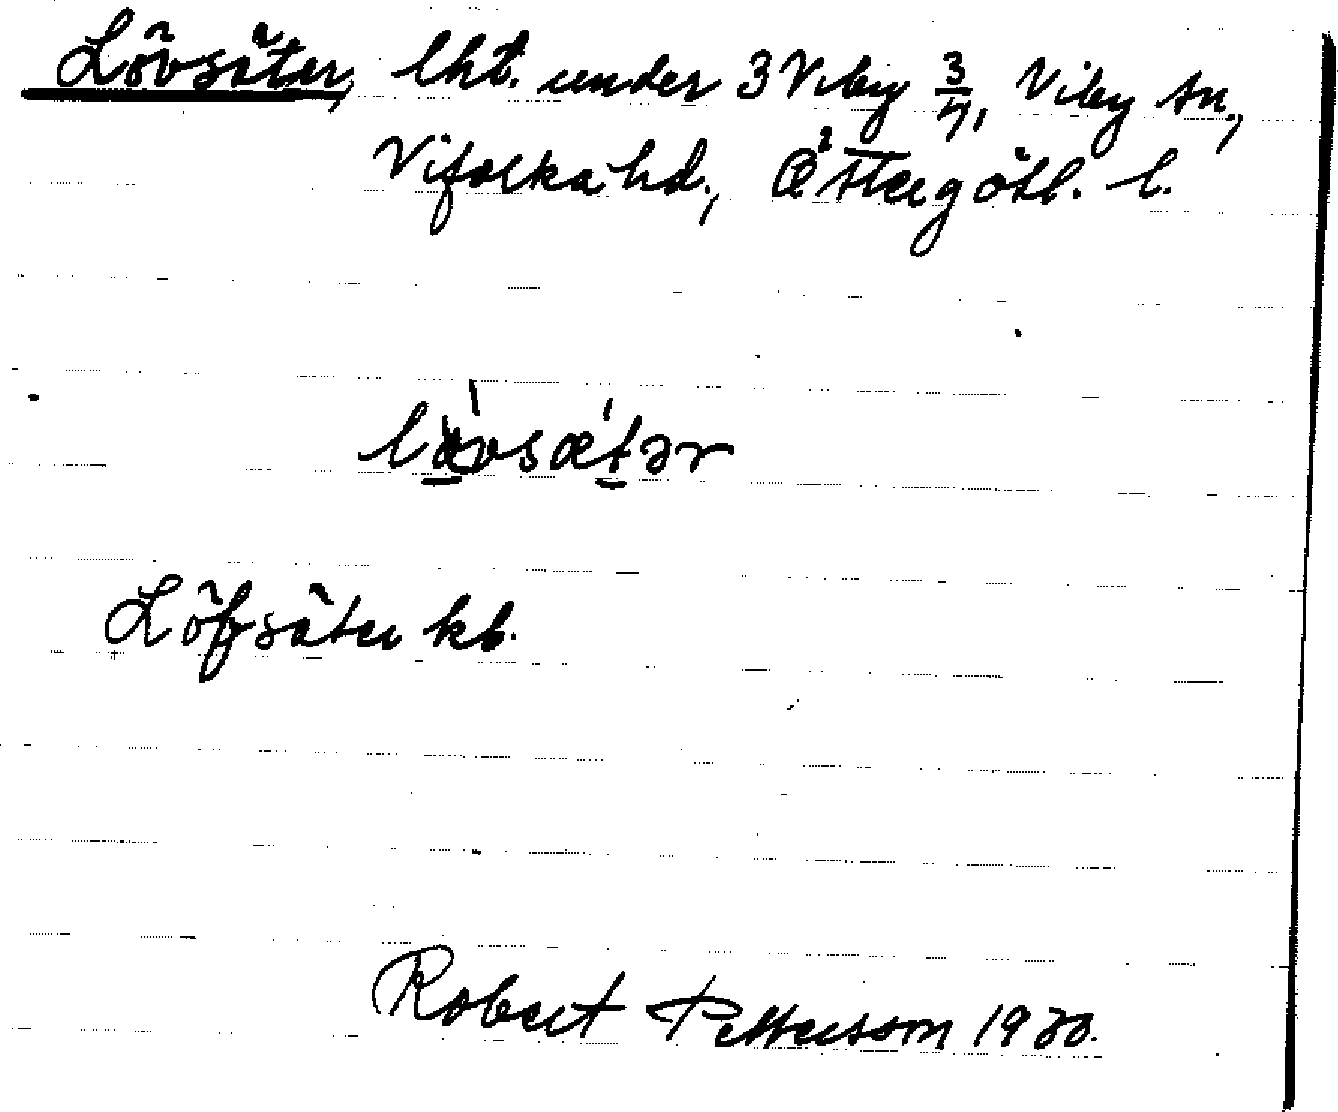 Lövsäter, lht. under 3 Viby 3/7, Viby sn,
Vifolka hd., Östergötl. l.
Löfsäter kb.
Robert Petterson 1930.